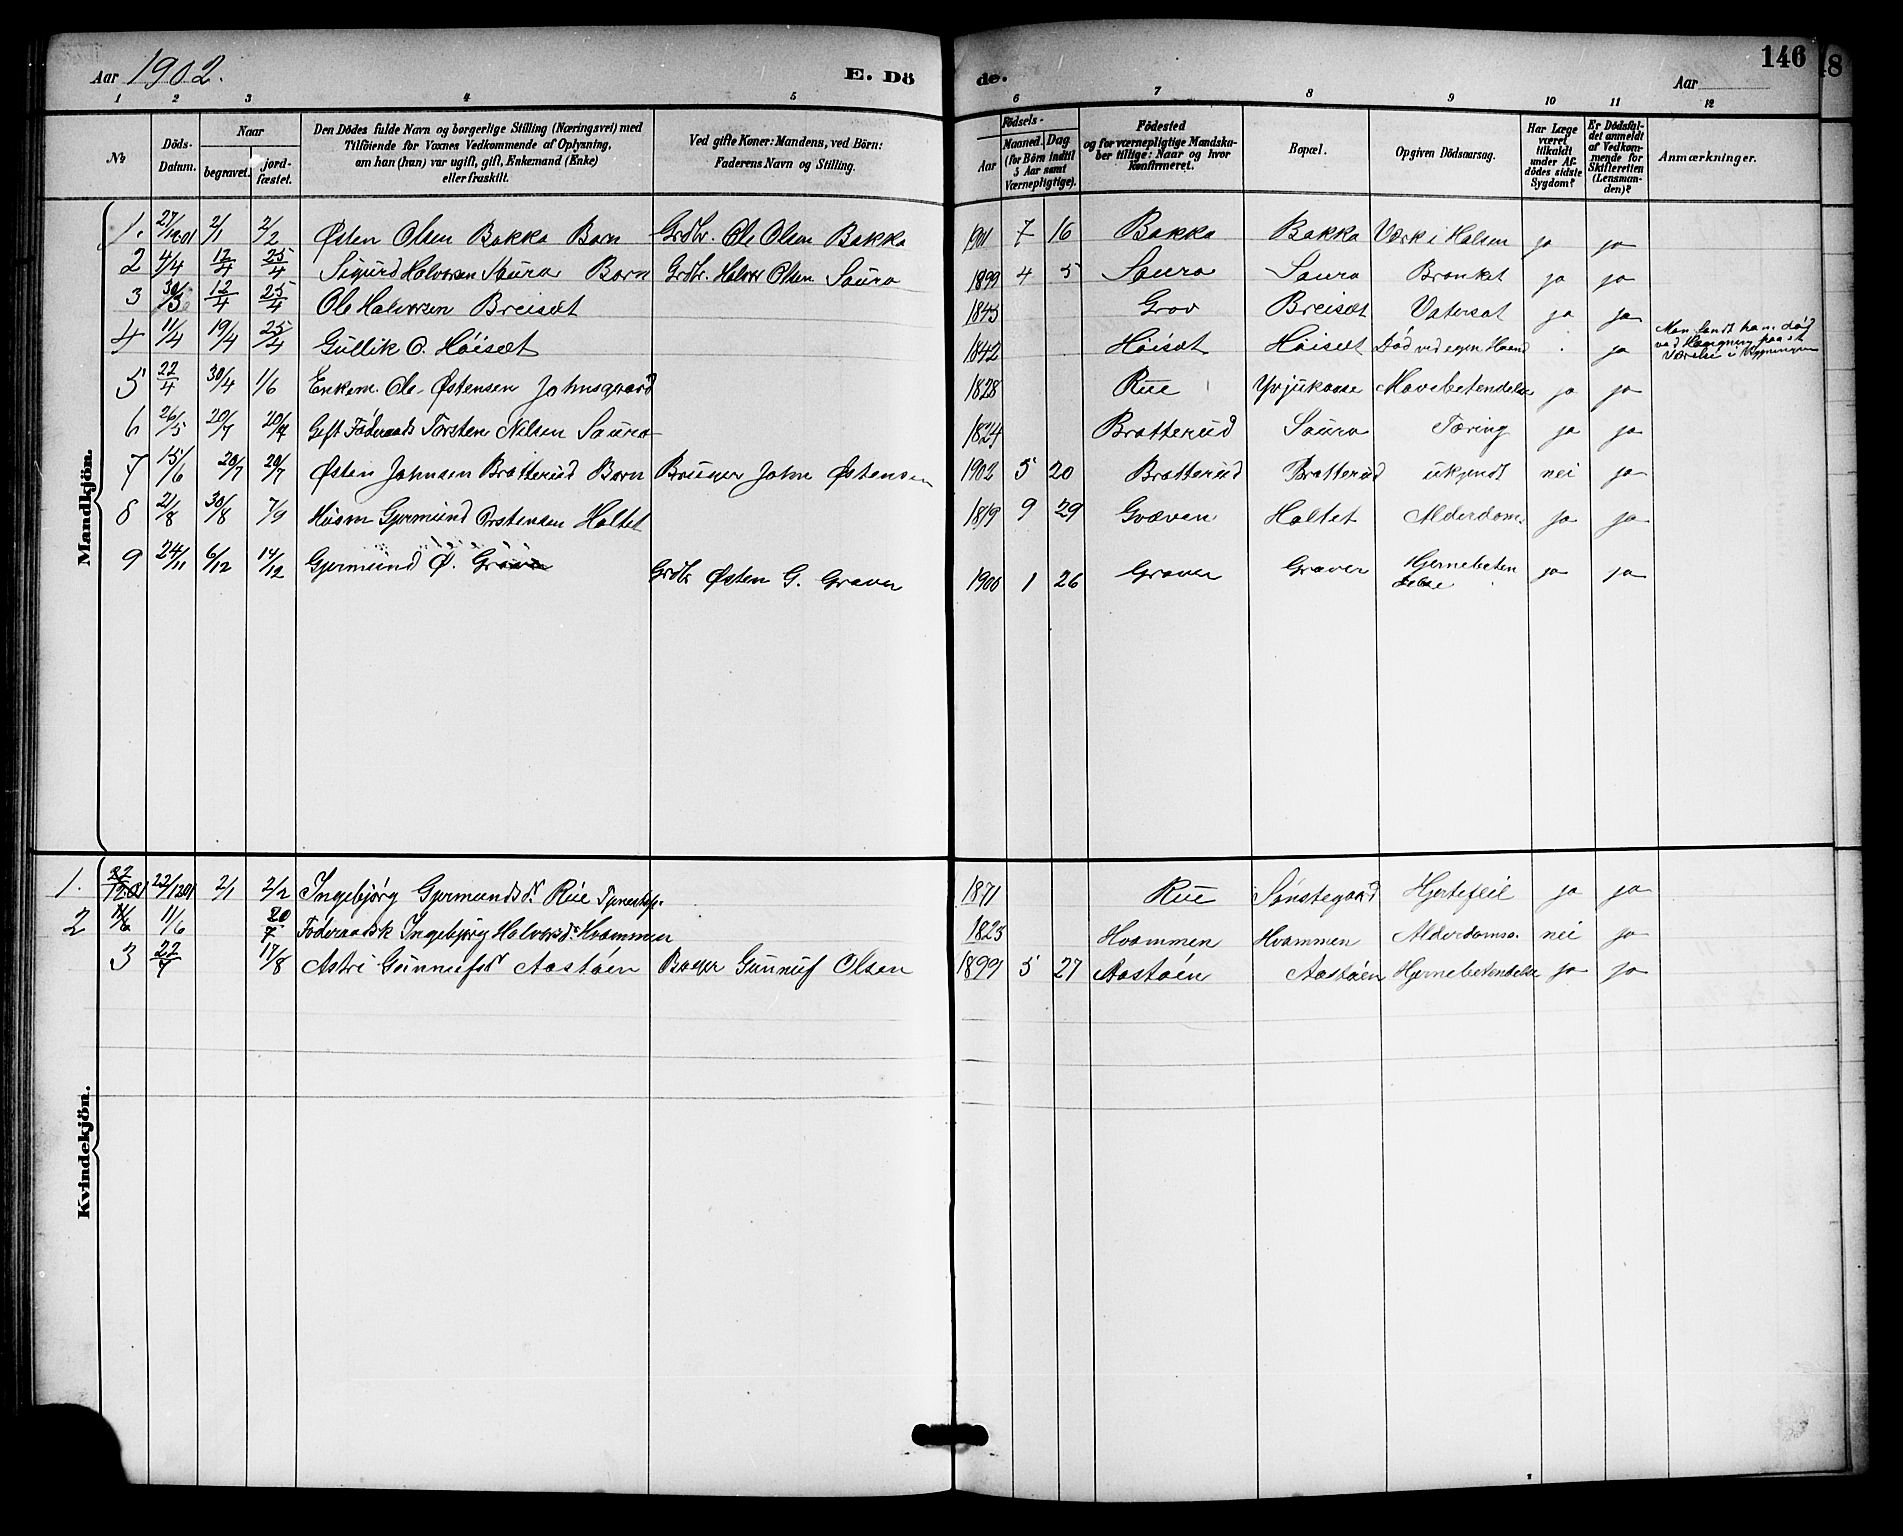 Aar 1902. E. Dö de. Aar 146
1 2 3 4 5 6 7 8 9 10 11 12
No
Döds-Datum.
Naar begravet. jord-fæstet.
Den Dödes fulde Navn og borgerlige Stilling (Næringsvei) med
Tilföiende for Voxnes Vedkommende af Oplysning,
om han (hun) var ugift, gift, Enkemand (Enke)
eller fraskilt.
Ved gifte Koner: Mandens, ved Börn:
Faderens Navn og Stilling.
Födsels-
Aar Maaned. Dag
(for Börn indtil
5 Aar samt
Værnepligtige).
Födested
og for værnepligtige Mandska-
ber tillige: Naar og hvor
Konfirmeret.
Bopæl.
Opgiven Dödsaarsag.
Har Læge
været
tilkaldt
under Af-
dödes sidste
Sygdom?
Er Dödsfal-
det anmeldt
af Vedkom-
mende for
Skifteretten
(Lensman-
den)?
Anmærkninger.
Mandkjön.
1. 27/12 01 2/1 2/2 Østen Olsen Bakka Barn Grdbr. Ole Olsen Bakka 1901 7 16 Bakka Bakka Værk i Halsen ja ja
2 4/4 12/4 25/4 Sigurd Halvorsen Saura Barn Grdbr. Halvor Olsen Saura 1899 4 5 Saura Saura Bronket ja ja
3 30/3 12/4 25/4 Ole Halvorsen Breiset 1845 Grov Breiset Vatersot ja ja
4 11/4 19/4 25/4 Gullik O. Höiset 1842 Höiset Höiset Död ved egen Haand . ja Man fandt ham död
ved Hængning paa et
Værelse i Bygningen
5 22/4 30/4 1/6 Enkem. Ole Østensen Johnsgaard 1828 Rue Mavebetendelse ja ja
6 26/5 20/7 20/7 Gift Föderaads Torsten Nilsen Saura 1824 Bratterud Saura Tæring ja ja
7 15/6 20/7 20/7 Østen Johnsen Bratterud Barn Bruger John Østensen 1902 5 20 Bratterud Bratterud ukjendt nei ja
8 21/8 30/8 7/9 Husm Gjermund Torstensen Haltet 1819 9 29 Gvæven Haltet Alderdom. ja ja
9 24/11 6/12 14/12 Gjermund Ø. Graver Grdbr Østen G. Graver 1900 1 26 Graver Graver Hjernebeten
delse ja ja
Kvindekjön.
1. 22/12 01 22/12 01 2/1 2/2 Ingebjörg Gjermundsd. Rue 1871 Rue Sönstegaard Hjertefeil ja ja
2 11/6 11/6 20/7 Föderaadsk Ingebjörg Halvorsd. Hvammen 1823 Hvammen Hvammen Alderdomss. nei ja
3 22/7 17/8 Astri Gunnufsd Aastöen Bager Gunnuf Olsen 1899 5 27 Aastöen Aastöen Hjernebetendelse ja ja